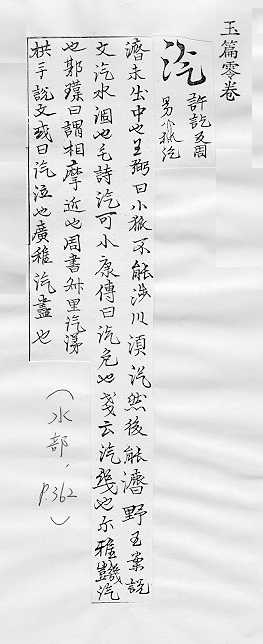 玉篇零卷
汔
許訖反周
易小狐汔
濟未出中也王弼曰小狐不能涉川湏汔然後能濟野王案說
文汔水涸也毛詩汔可小康傳曰汔危也戔云汔幾也尒雅汔
也郭璞曰謂相摩近也周書里汔
拱手說文或曰汔泣也廣雅汔盡也
(水部, P.362)